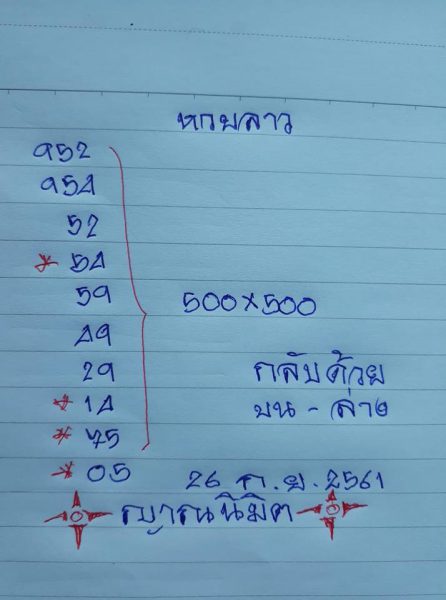 หวยลาว
952
954
52
* 54
59 500x500
49
29 กลับด้วย
* 14 บน - ล่าง
* 75
* 05 26 ก.ย. 2561
ญาณนิมิต